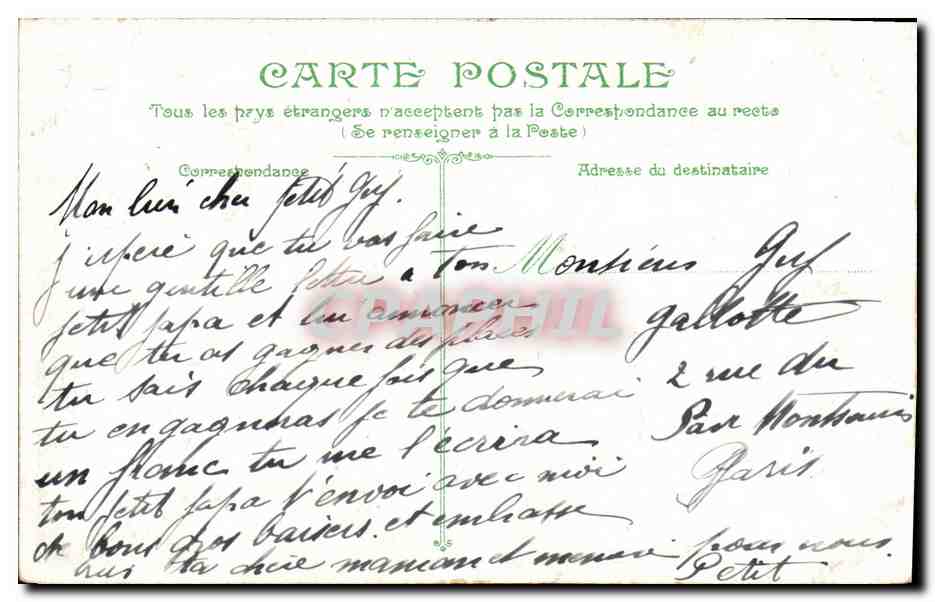 CARTE POSTALE
Tous les pays étrangers n'acceptent pas la Correspondance au recto
(Se renseigner à la Poste)
Correspondance
Adresse du destinataire
Mon bien cher petit Guy.
j'espere que tu vas faire
une gentille lettre a ton
petit papa et lui annoncer
que tu as gagner des places
tu sais chaque fois que
tu en gagneras je te donnerai
un franc tu me l'écrira
ton petit papa t'envoi avec moi
de bons gros baisers. et embrasse
ta chère maman et pour nous.
Petit
Monsieur Guy
Gallotte
2 rue du
Parc Montsouris
Paris
CPAPHIL